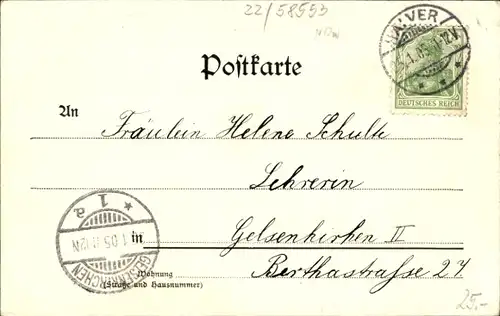 22/58553
HALVER
1.05. 11-12V
Postkarte
DEUTSCHES REICH
An
Fräulein Helene Schulte
Lehrerin
in
Gelsenkirchen II
Wohnung
(Straße und Hausnummer)
Berthastrasse 27
GELSENKIRCHEN
1.05. 11-12N
* 1 a
25.-